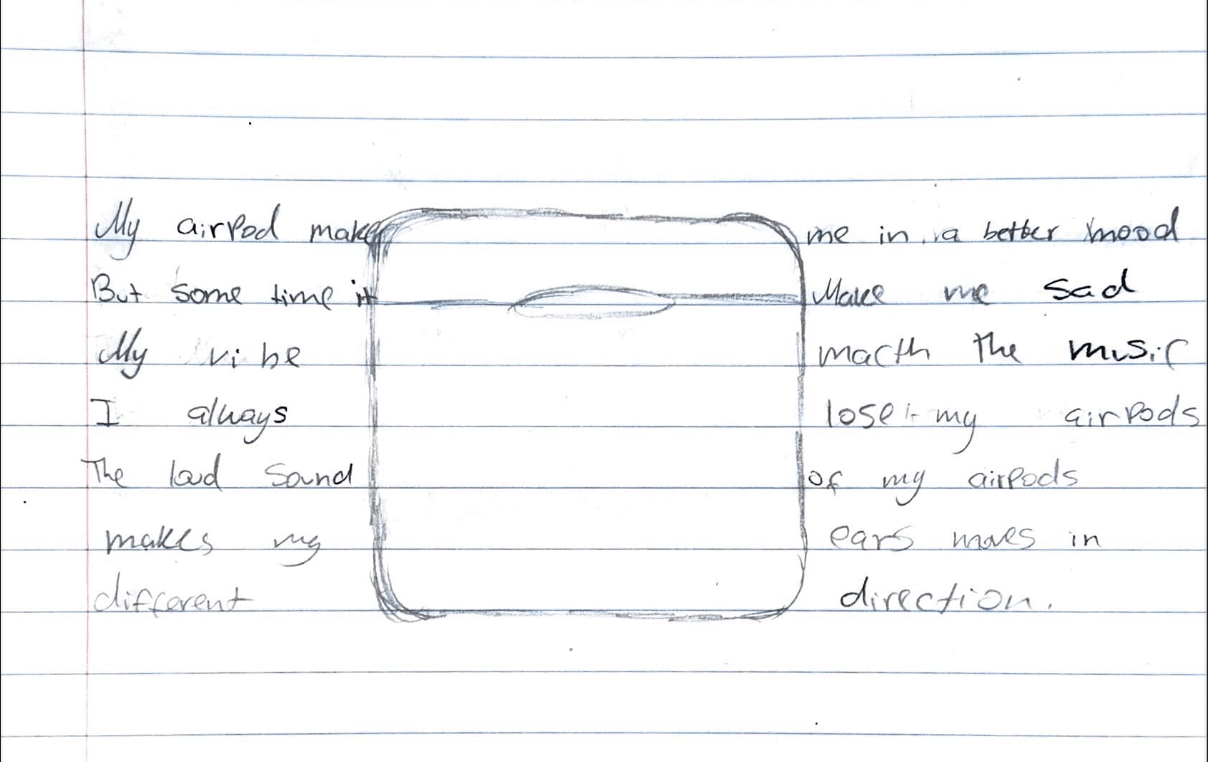 My airpod make me in a better mood
But some time it Make me sad
My vibe macth the music
I always lose my airpods
The loud Sound of my airpods
makes my ears moves in
different direction.